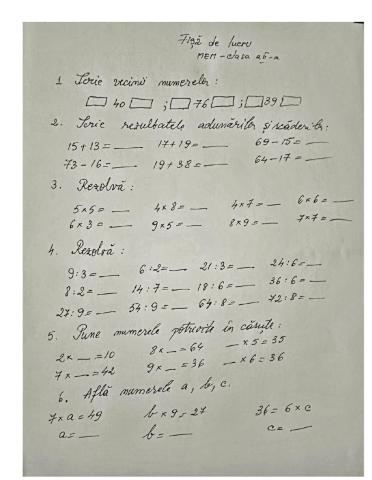 Fișă de lucru
MEM - clasa a II-a
1 Scrie vecinii numerelor:
40 ; 76 ; 39
2. Scrie rezultatele adunărilor și scăderilor:
15+13=__ 17+19=__ 69-15=__
73-16=__ 19+38=__ 64-17=__
3. Rezolvă:
5×5=__ 4×8=__ 4×7=__ 6×6=__
6×3=__ 9×5=__ 8×9=__ 7×7=__
4. Rezolvă:
9:3=__ 6:2=__ 21:3=__ 24:6=__
8:2=__ 14:7=__ 18:6=__ 36:6=__
27:9=__ 54:9=__ 64:8=__ 72:8=__
5. Pune numerele potrivite în căsuțe:
2×__=10 8×__=64 __×5=35
7×__=42 9×__=36 __×6=36
6. Află numerele a, b, c.
7×a=49 b×9=27 36=6×c
a=__ b=__ c=__